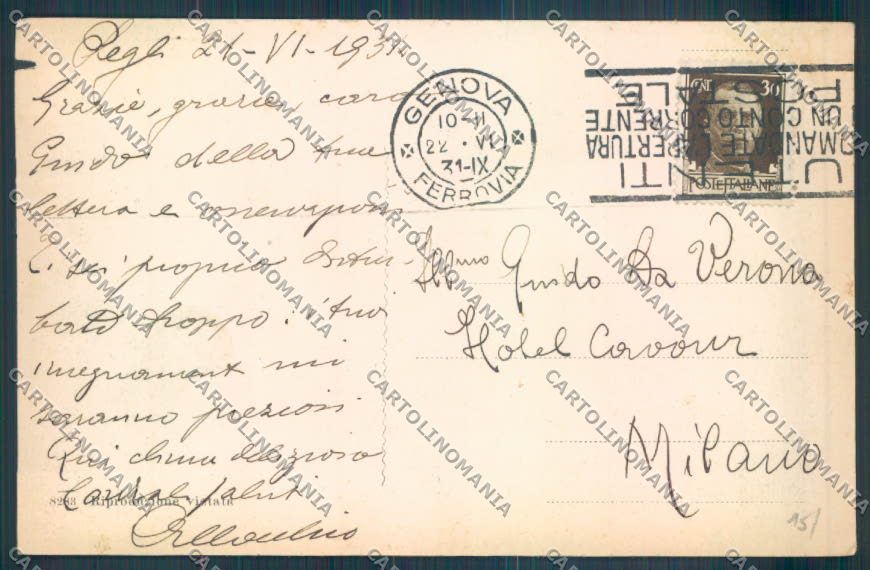 Pegli 21-VI-1931
Grazie, grazie, caro
Guido della tua
lettera e
Ti sei proprio distur-
bato troppo! i tuoi
insegnamenti mi
saranno preziosi
Qui clima delizioso
Cordiali saluti
8283 - Riproduzione vietata
GENOVA
10-11
22 · VI
31-IX
FERROVIA
UTENTI
DOMANDATE L'APERTURA
DI UN CONTO CORRENTE
POSTALE
CENT 30
POSTE ITALIANE
Ill.mo Guido Da Verona
Hotel Cavour
Milano
15/
CARTOLINOMANIA